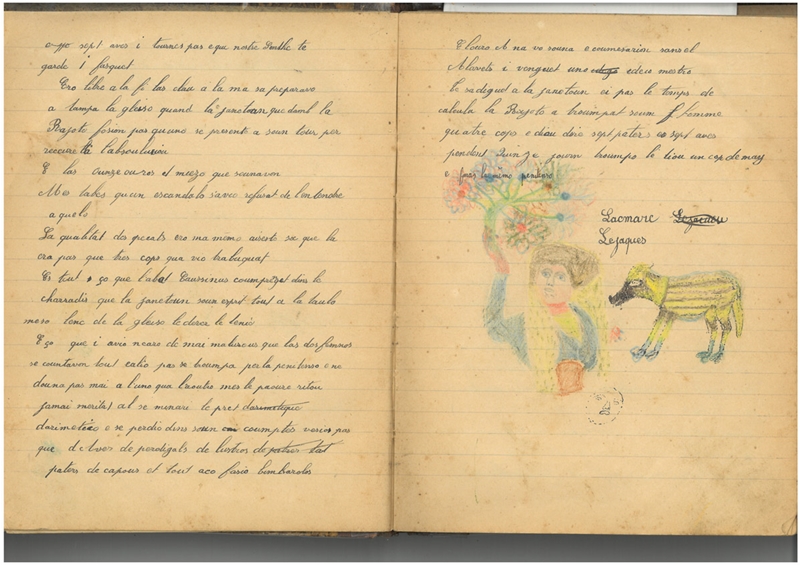 sept aves i tournes pas e que nostre Senthe te
garde i fasquet
Ero libre a la fi las clau a la ma sa preparavo
a tampa la gleiso quand la janetoun que damb la
Rajoto fosium pas qu'uno se presento a soun tour per
recevre l'absoulucion
E las ounze ouros et miezo que sounavon
Mes tabes qu'un escandolo s'avio refusat de l'entendre
aquelo
La qualitat dos pecats ero ma mêmo aiserto sie que la
ero pas que tres cops qu'a vio trabuquat
Es tout ço que l'abat Taurrinus coumprenguet dins le
charradis que la janetoun
mero lenc de la gleiso le derer le tenio
E ço que i avio nearo de mai malurous que las dos fennos
se countavon tout calio pas se troumpa per la penitenso e ne
douna pas mai a l'uno qu'a l'autro mes le paoure ritou
jamai meritat al se menaro le pret darimetique
darimetico e se perdio dins soun coumptes vesios pas
que d'Aves de perdigals de lustros de patres tat
paters de capous et tout aco fasio bimbarolos
E l'ouro A na vo souna e coumesarion sans el
Alavets i vengout uno edeio mestro
be sadiguet a la janetoun ei pas le temps de
calcula la Rajoto a troumpat soun f femme
quatre cops e diou dire sept paters e sept aves
pendent quinze jours troumpo le tiou un cop de may
e faras la mêmo penitenso
Lacmarc Lejacques
Lejaques